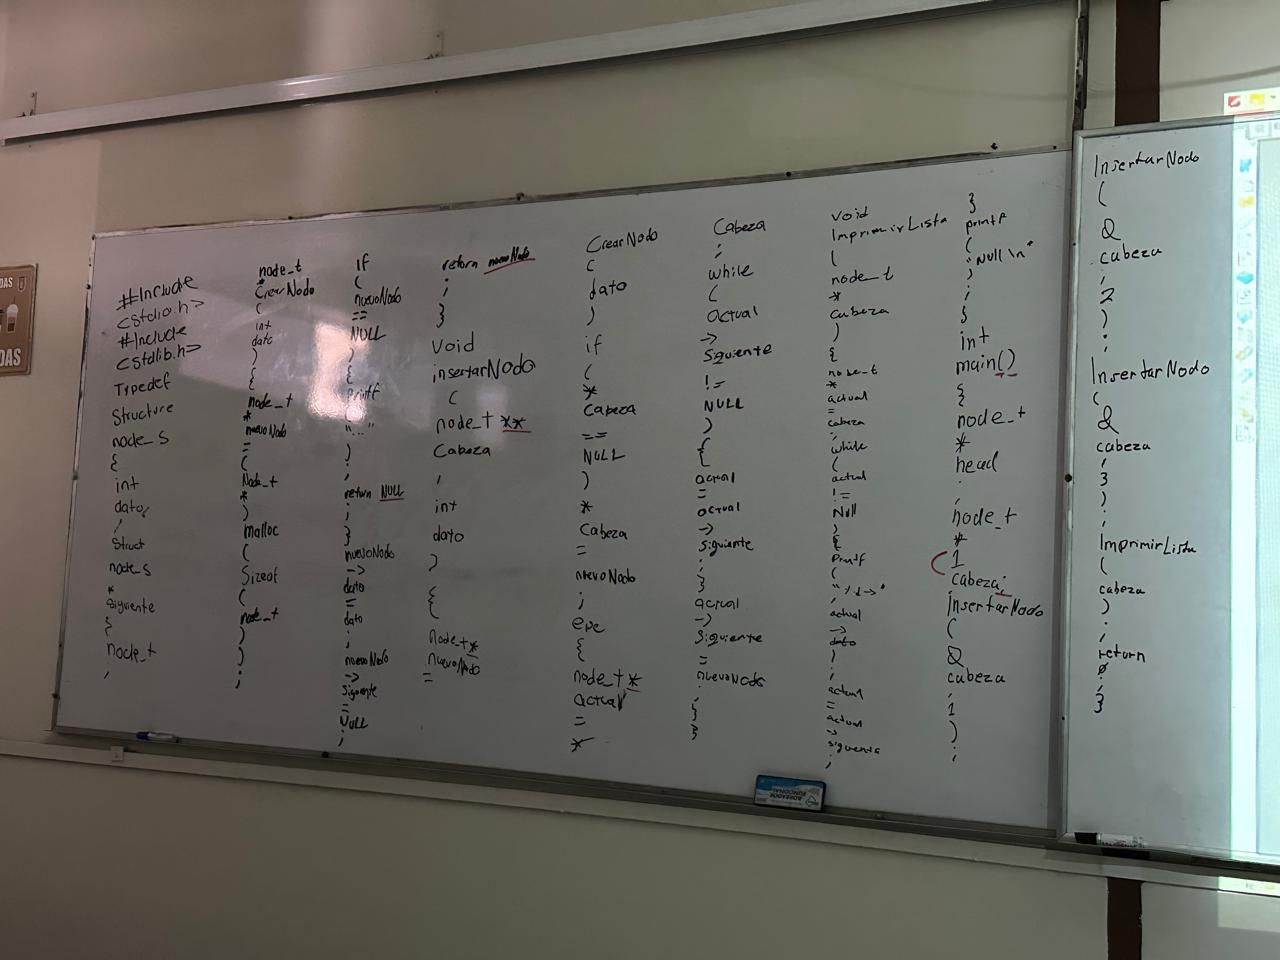 #Include
<stdio.h>
#Include
<stdlib.h>
Typedef
Structure
node_s
{
int
dato;
struct
node_s
*
siguiente
}
node_t
;
node_t
*
CrearNodo
(
int
dato
)
{
node_t
*
nuevoNodo
=
(
Node_t
*
)
malloc
(
Sizeof
(
node_t
)
)
;
If
(
nuevoNodo
==
NULL
)
{
printf
(
"..."
)
;
return NULL
;
}
nuevoNodo
->
dato
=
dato
;
nuevoNodo
->
siguiente
=
NULL
;
return nuevoNodo
;
}
Void
insertarNodo
(
node_t **
Cabeza
,
int
dato
)
{
Node_t*
nuevoNodo
=
CrearNodo
(
dato
)
if
(
*
Cabeza
==
NULL
)
*
Cabeza
=
nuevoNodo
;
{
node_t*
actual
=
*
Cabeza
;
while
(
actual
->
Siguiente
!=
NULL
)
{
actual
=
actual
->
siguiente
;
}
actual
->
Siguiente
=
nuevoNodo
;
}
}
Void
ImprimirLista
(
node_t
*
cabeza
)
{
node_t
*
actual
=
cabeza
;
while
(
actual
!=
Null
)
{
Printf
(
actual
->
dato
)
;
actual
=
actual
->
siguiente
;
}
printf
(
"Null \n"
)
;
}
int
main()
{
node_t
*
head
;
node_t
*
1
cabeza;
InsertarNodo
(
&
cabeza
,
1
)
;
InsertarNodo
(
&
cabeza
,
2
)
;
InsertarNodo
(
&
cabeza
,
3
)
;
ImprimirLista
(
cabeza
)
;
return
0
;
}
DAS
DAS
BORRADOR
FUNCIONAL